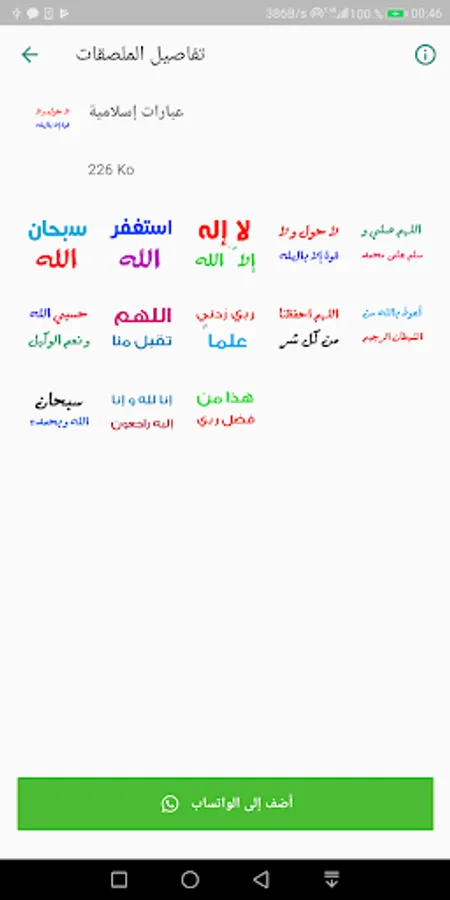 386B/s 100 % 00:46
تفاصيل الملصقات
لا حول ولا
قوة إلا بالله
عبارات إسلامية
226 Ko
سبحان
الله
استغفر
الله
لا إله
إلا الله
لا حول ولا
قوة إلا بالله
اللهم صلي و
سلم على محمد
حسبي الله
ونعم الوكيل
اللهم
تقبل منا
ربي زدني
علما
اللهم احفظنا
من كل شر
أعوذ بالله من
الشيطان الرجيم
سبحان
الله وبحمده
إنا لله و إنا
إليه راجعون
هذا من
فضل ربي
أضف إلى الواتساب